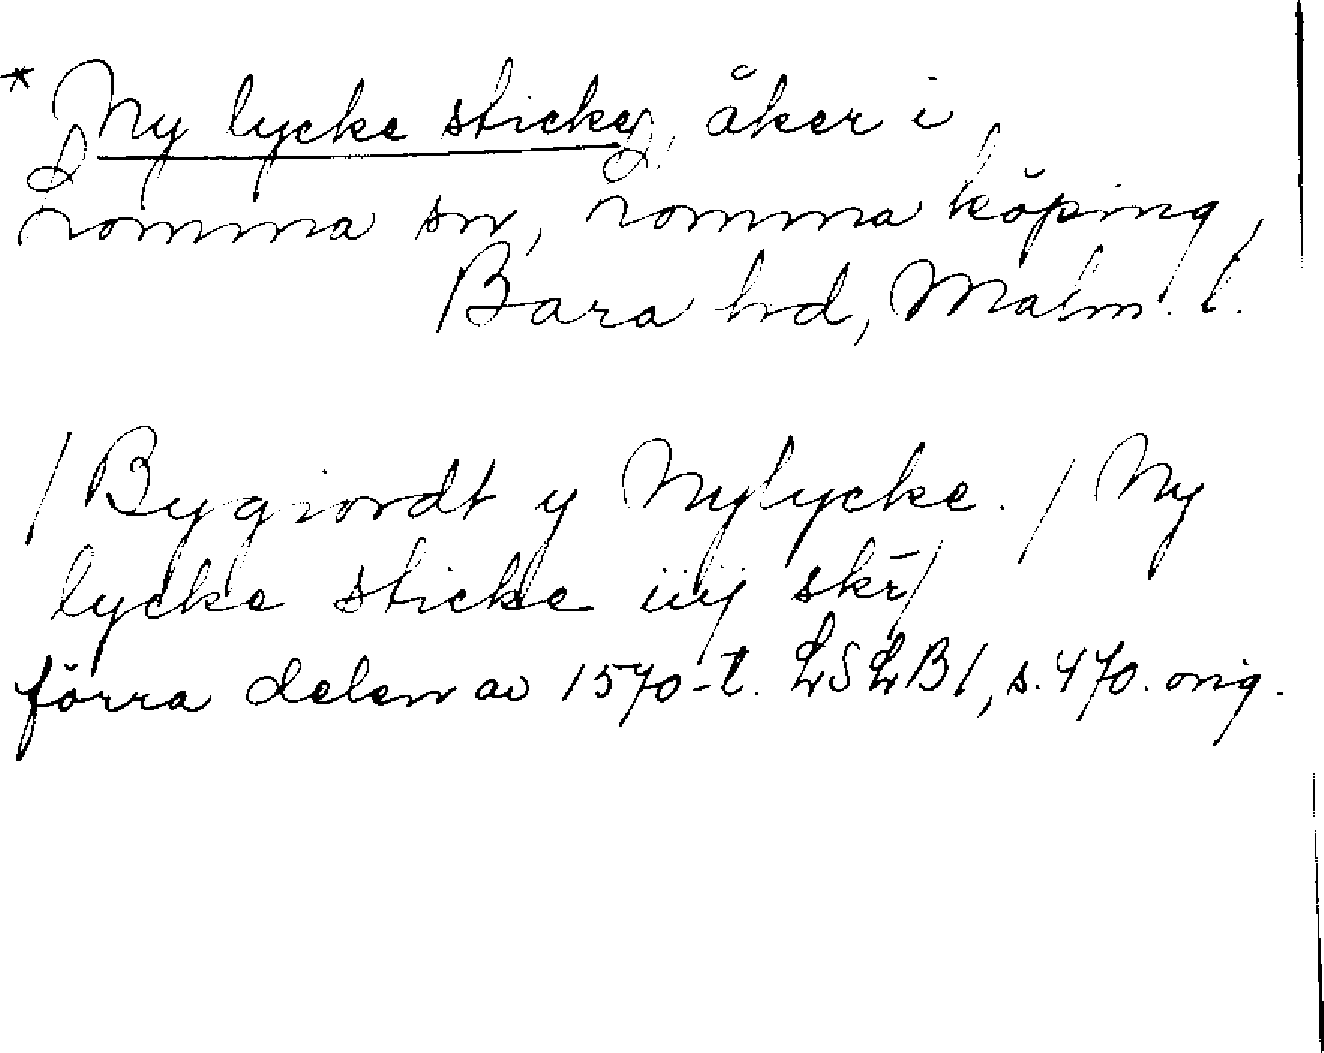 * Ny lycke sticke, åker i
Lomma sn, Lomma köping,
Bara hd, Malm. l.
/Bygiordt y Nylycke./Ny
lycke sticke iiij skr̄/
förra delen av 1570-t. LSLB1, s. 470. orig.